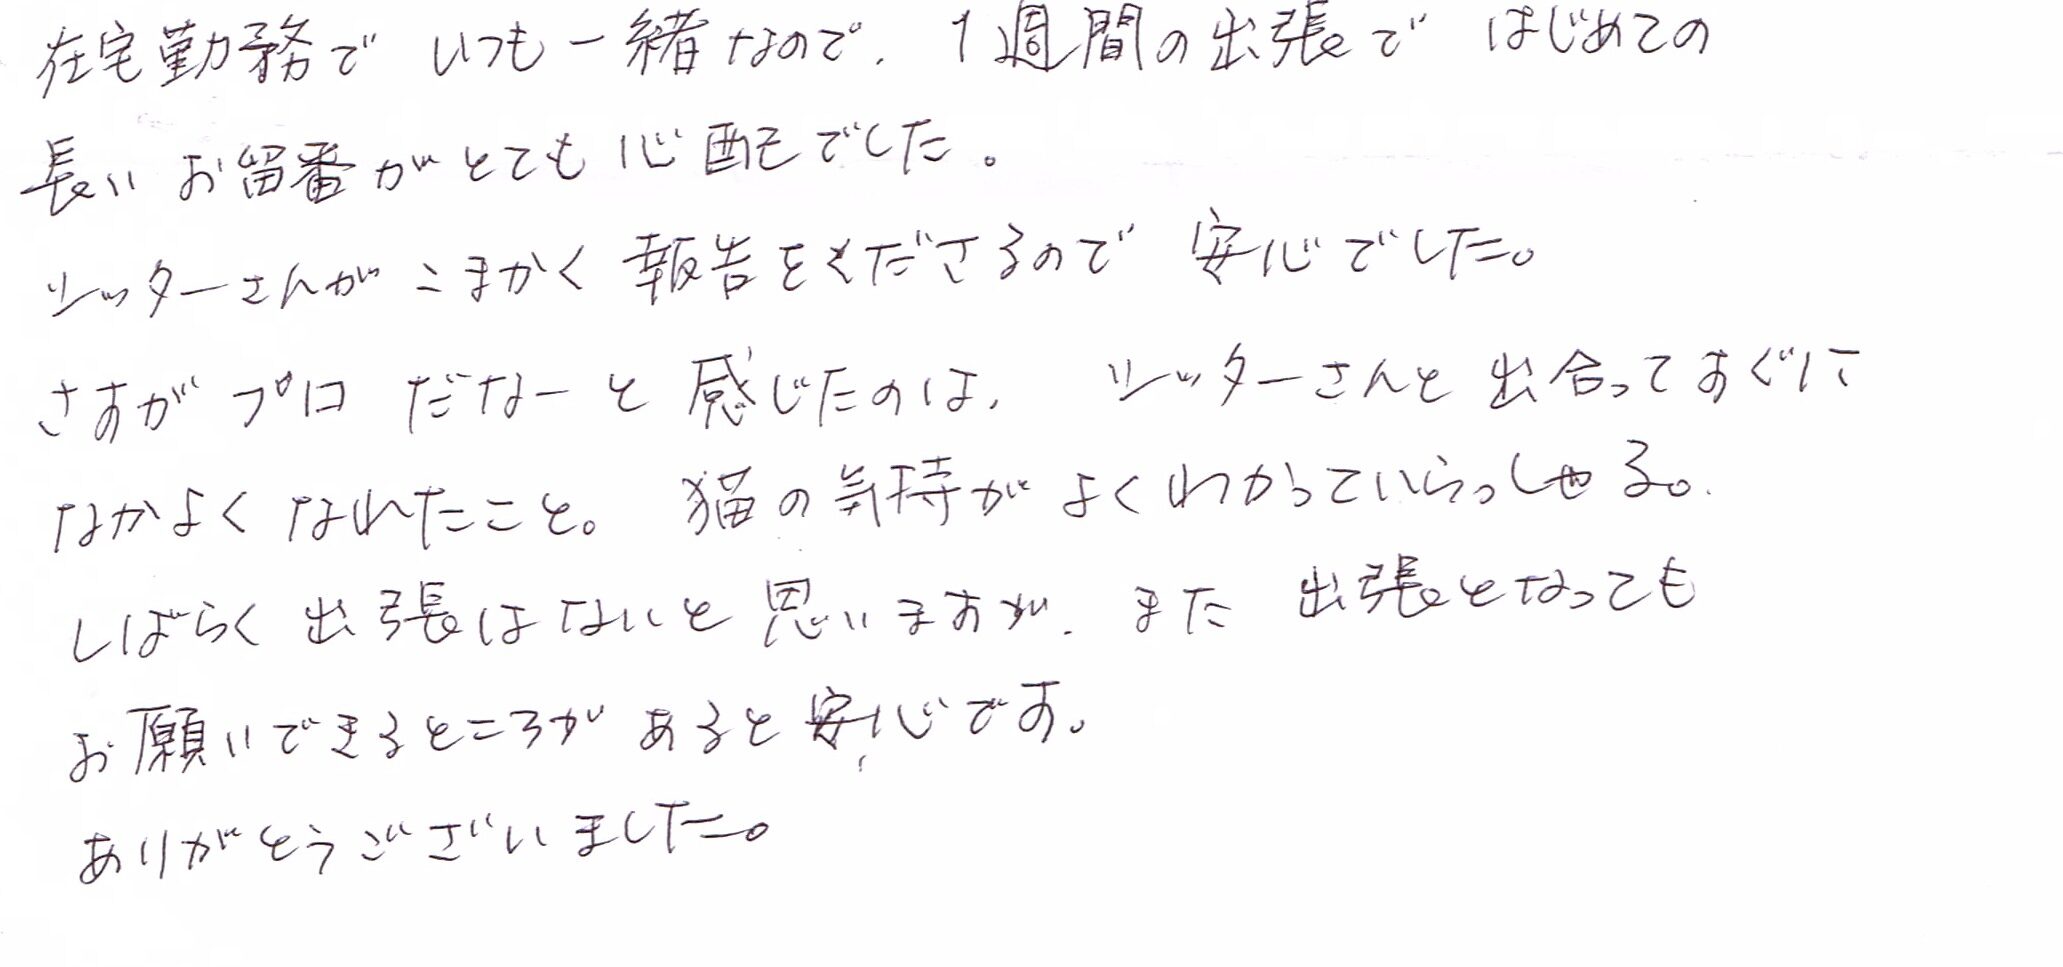 在宅勤務で いつも一緒なので、1週間の出張で はじめての
長い お留番がとても心配でした。
シッターさんが こまかく 報告をくださるので 安心でした。
さすが プロ だなーと 感じたのは、 シッターさんと 出合ってすぐに
なかよく なれたこと。 猫の気持が よくわかっていらっしゃる。
しばらく 出張はないと 思いますが、また 出張となっても
お願いできるところが あると安心です。
ありがとうございました。